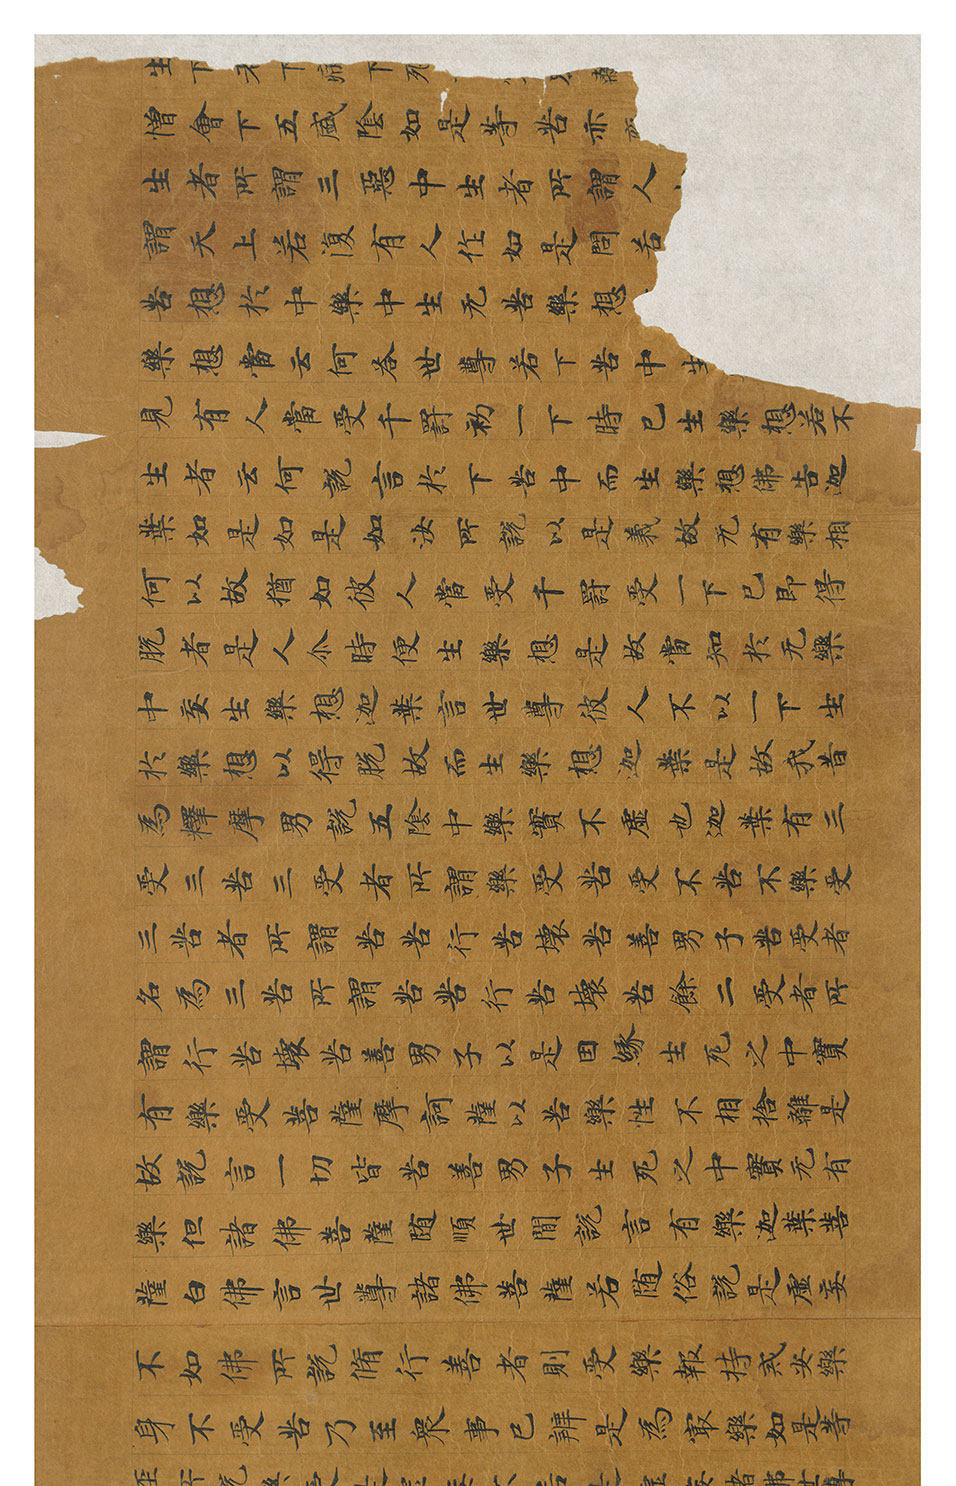 生下老下病下死
憎會下五盛陰如是等苦亦
生者所謂三惡中生者所謂人
謂天上若復有人作如是問若
苦想於中樂中生无苦樂想
樂想當云何答世尊若下苦中生
見有人當受千罰初一下時已生樂想若不
生者云何說言於下苦中而生樂想佛告迦
葉如是如是如汝所說以是義故无有樂相
何以故猶如彼人當受千罰受一下已即得
脫者是人尒時便生樂想是故當知於无樂
中妄生樂想迦葉言世尊彼人不以一下生
於樂想以得脫故而生樂想迦葉是故我昔
為釋摩男說五陰中樂實不虛也迦葉有三
受三苦三受者所謂樂受苦受不苦不樂受
三苦者所謂苦苦行苦壞苦善男子苦受者
名為三苦所謂苦苦行苦壞苦餘二受者所
謂行苦壞苦善男子以是因緣生死之中實
有樂受菩薩摩訶薩以苦樂性不相捨離是
故說言一切皆苦善男子生死之中實无有
樂但諸佛菩薩随順世間說言有樂迦葉菩
薩白佛言世尊諸佛菩薩若随俗說是虛妄
不如佛所說脩行善者則受樂報持戒安樂
身不受苦乃至衆事已辦是為冣樂如是等